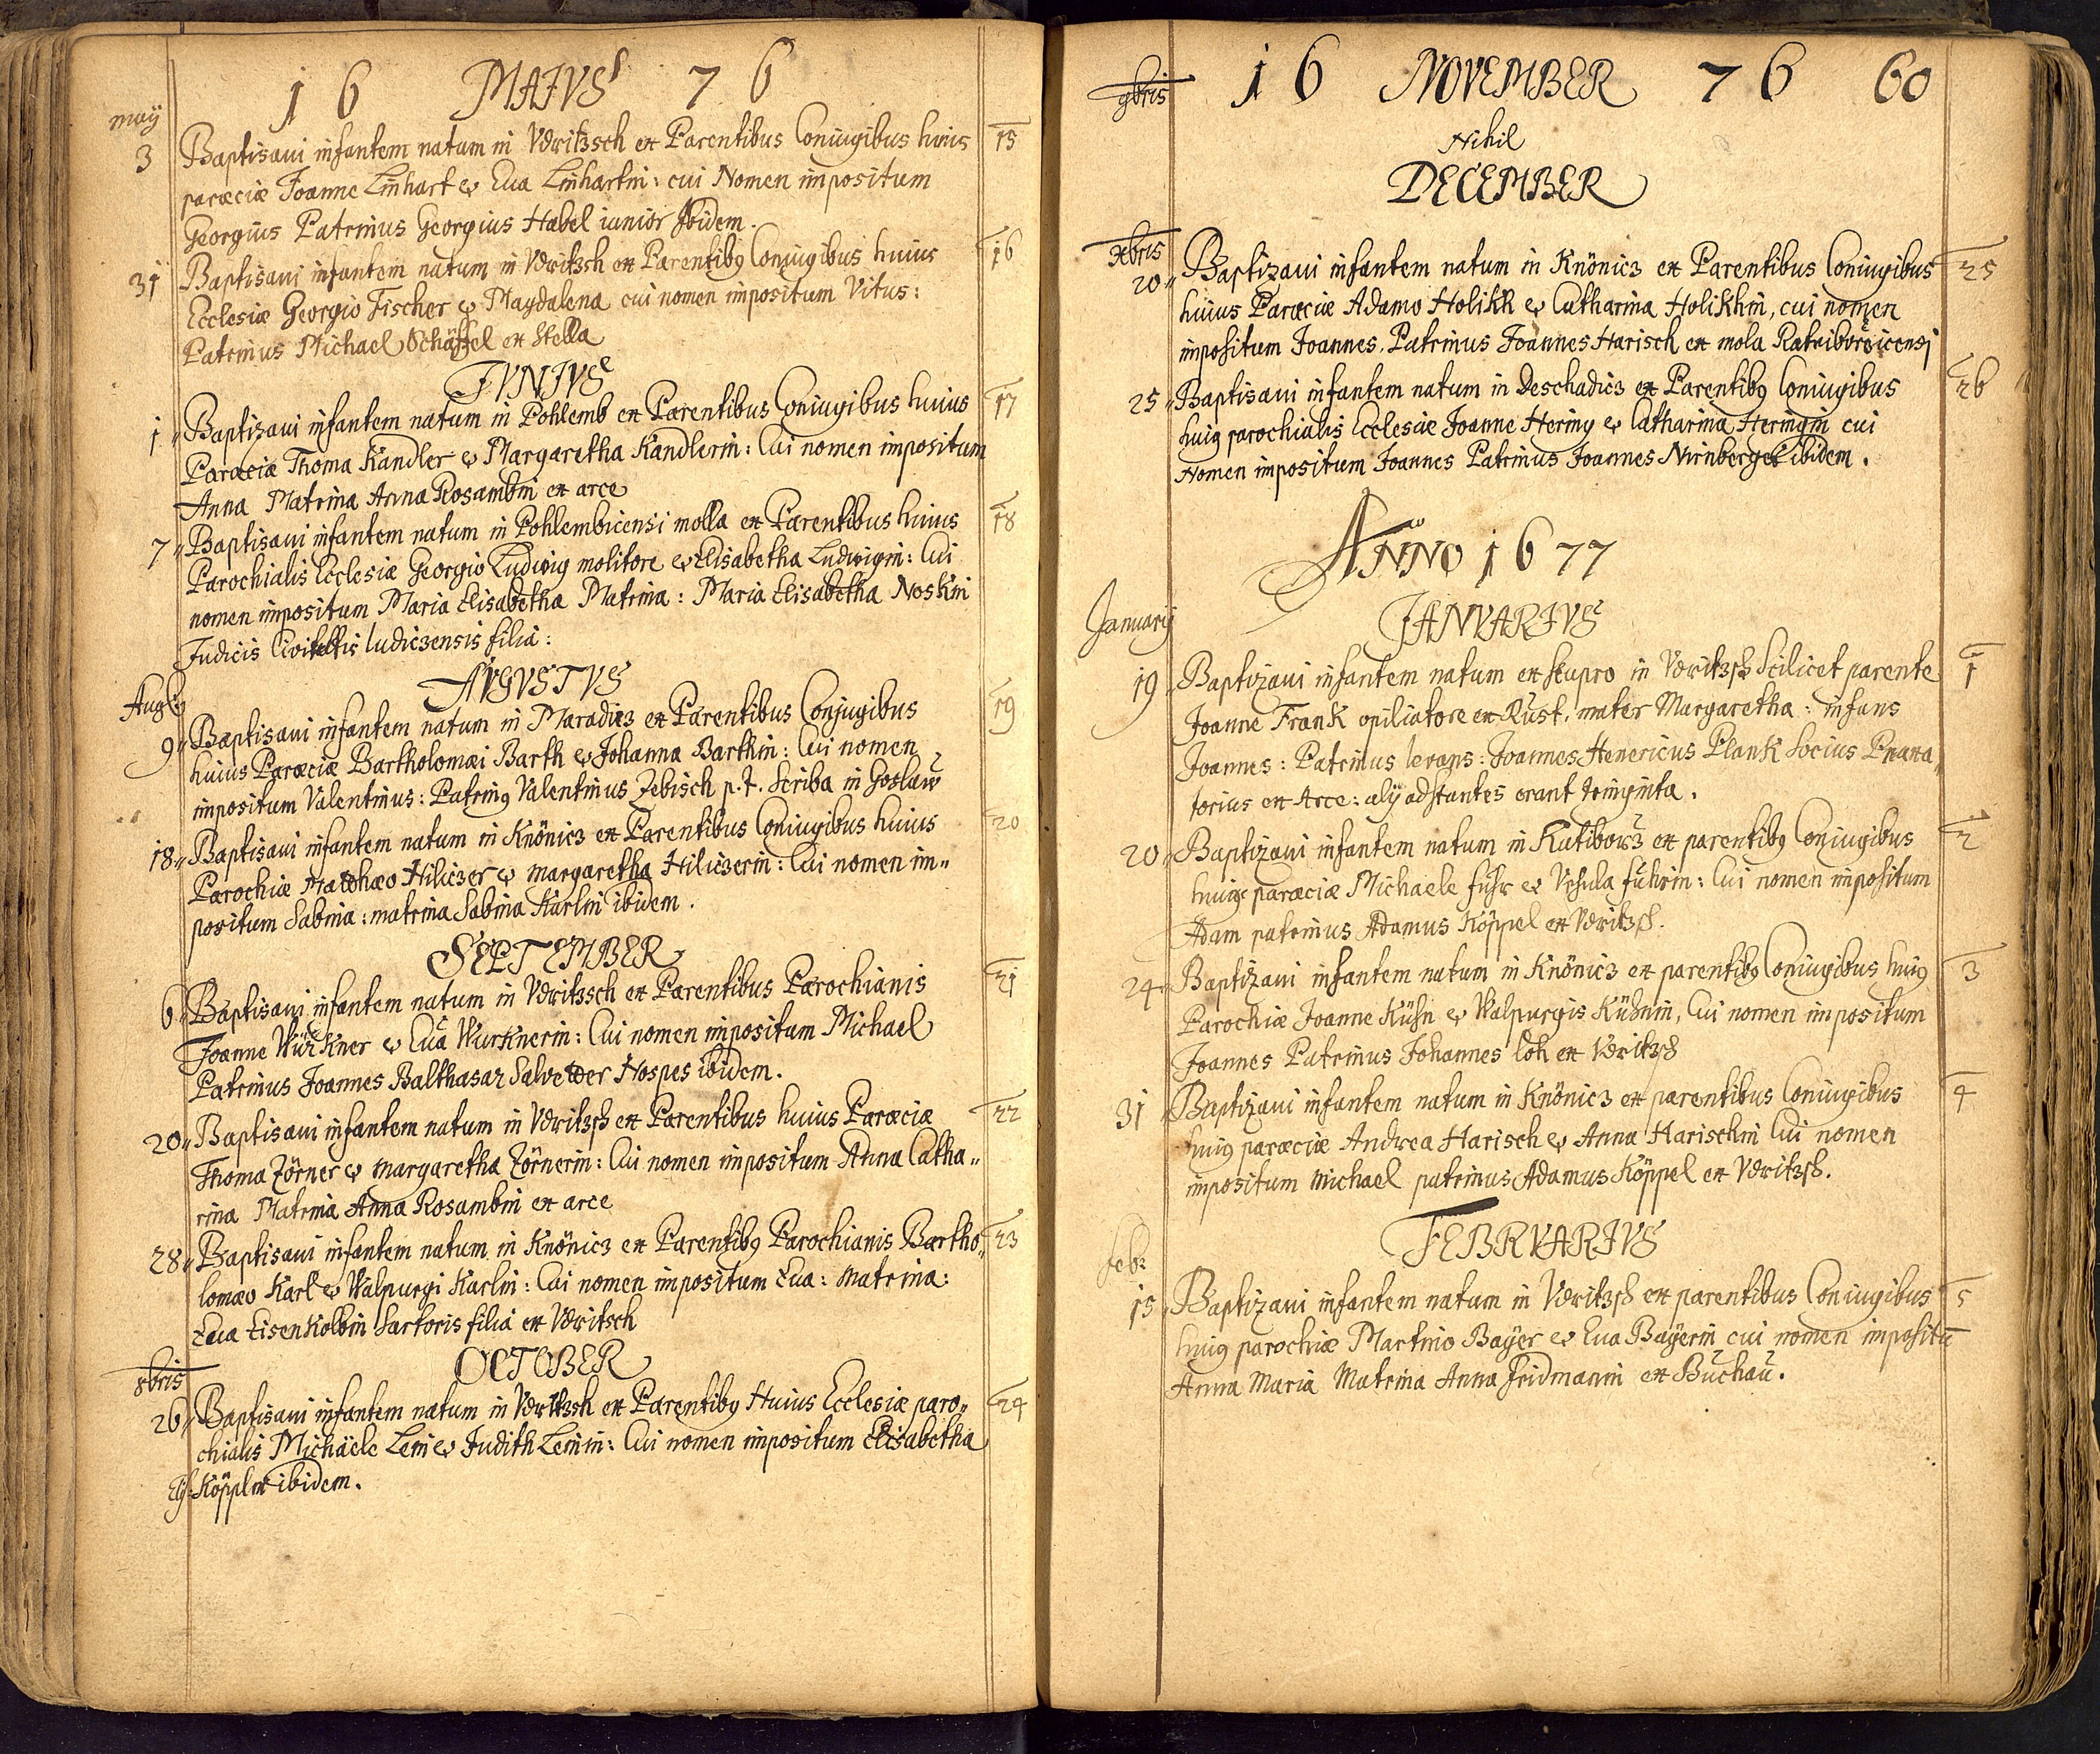 16 MAIVS 76
may
3 Baptisavi infantem natum in Vdritzsch ex Parentibus Coniugibus huius 15
parœciæ Joanne Linhart & Eua Linhartin: cui Nomen impositum
Georgius Patrinus Georgius Habel iunior Ibidem.
31 Baptisavi infantem natum in Vdritzsch ex Parentibꝯ Coniugibus huius 16
Ecclesiæ Georgio Fischer & Magdalena cui nomen impositum Vitus:
Patrinus Michael Schäffel ex Stella
IVNIVS
1 „ Baptizavi infantem natum in Pohlemb ex Parentibus Coniugibus huius 17
Parœciæ Thoma Kandler & Margaretha Kandlerin: Cui nomen impositum
Anna Matrina Anna Rosambin ex arce
7 „ Baptisavi infantem natum in Pohlembicensi molla ex Parentibus huius 18
Parochialis Ecclesiæ Georgio Ludwig molitore & Elisabetha Ludwigin: Cui
nomen impositum Maria Elisabetha Matrina: Maria Elisabetha Noskin
Judicis Civitatis ludiczensis filia:
AVGVSTVS
Augti
9 „ Baptisavi infantem natum in Maradicz ex Parentibus Conjugibus 19
huius Parœciæ Bartholomæi Barth & Johanna Barthin: Cui nomen
impositum Valentinus: Patrinꝯ Valentinus Zebisch p.t. Scriba in Goslaw
18 „ Baptisavi infantem natum in Knönicz ex Parentibus Coniugibus huius 20
Parochiæ Mathæo Hiliczer & margaretha Hiliczerin: Cui nomen im„
positum Sabina: matrina Sabina Karlin ibidem.
SEPTEMBER
6 „ Baptisavi infantem natum in Vdritzsch ex Parentibus Parochianis 21
Joanne Würkner & Eua Wurknerin: Cui nomen impositum Michael
Patrinus Joannes Balthasar Salvetder Hospes ibidem.
20 „ Baptisavi infantem natum in Vdritzsch ex Parentibus huius Parœciæ 22
Thoma Zörner & margaretha Zörnerin: Cui nomen impositum Anna Catha„
rina Matrina Anna Rosambin ex arce
28 „ Baptisavi infantem natum in Knönicz ex Parentibꝯ Parochianis Bartho„ 23
lomæo Karl & Walpurgi Karlin: Cui nomen impositum Eua: Matrina:
Eua Eisenkolbin Sartoris filia ex Vdritsch
OCTOBER
8bris
26 „ Baptisavi infantem natum in Vdritzsch ex Parentibꝯ Huius Ecclesiæ paro„ 24
chialis Michäele Lein & Judith Leinin: Cui nomen impositum Elisabetha
Elis: Köpplin ibidem.
9bris 16 NOVEMBER 76 60
Nihil
DECEMBER
Xbris
20 „ Baptizavi infantem natum in Knönicz ex Parentibus Coniugibus 25
huius Parœciæ Adamo Holikh & Catharina Holikhin, cui nomen
impositum Joannes. Patrinus Joannes Harisch ex mola Ratiboricensi
25 „ Baptisavi infantem natum in Deschadicz ex Parentibꝯ Coniugibus 26
huiꝯ parochialis Ecclesiæ Joanne Hering & Catharina Heringin cui
Nomen impositum Joannes Patrinus Joannes Nirnberger ibidem.
ANNO 1677
IANVARIVS
Januarij
19 „ Baptizavi infantem natum ex stupro in Vdritzsch Scilicet parente 1
Joanne Frank opiliatore ex Rust. mater Margaretha: infans
Joannes: Patrinus levans: Joannes Henericus Plank Socius
ex Arce: alij adstantes erant
20 „ Baptizavi infantem natum in Ratiborz ex parentibꝯ Coniugibus 2
huiꝯ parœciæ Michaele führ & Vrsula führin: Cui nomen impositum
Adam patrinus Adamus Köppel ex Vdritzsch.
24 „ Baptizavi infantem natum in Knönicz ex parentibꝯ Coniugibus huiꝯ 3
Parochiæ Joanne Kühn & Walpurgis Kühnin, Cui nomen impositum
Joannes Patrinus Johannes Löh ex Vdritzsch
31 „ Baptizavi infantem natum in Knönicz ex parentibus Coniugibus 4
huiꝯ parœciæ Andrea Harisch & Anna Harischin Cui nomen
impositum Michael patrinus Adamus Köppel ex Vdritzsch.
FEBRVARIVS
feb:
15 „ Baptizavi infantem natum in Vdritzsch ex parentibus Coniugibus 5
huiꝯ parochiæ Martino Baÿer & Eua Baÿerin cui nomen impositū
Anna Maria Matrina Anna Fridmanin ex Buchau.